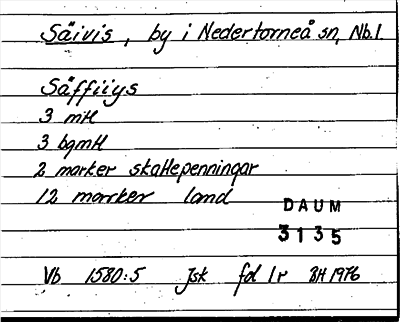 Säivis, by i Nedertorneå sn, Nb.l.
Säffiiys
3 mtl
3 bgmtl
2 marker skattepenningar
12 marker land
DAUM
3135
Vb 1580:5 Jsk fol 1r BH 1976